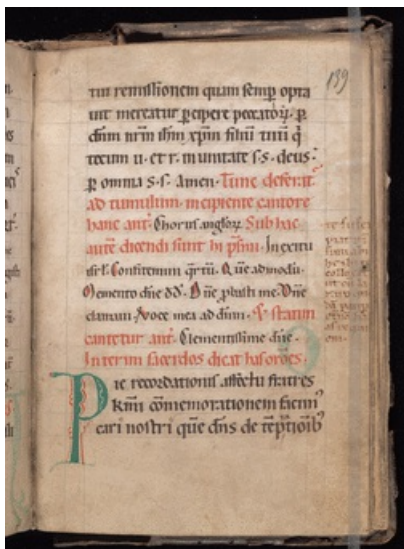 139
tui remissionem quam semp opta
uit mereatur ꝑcipere peccatoꝝ. ꝑ
dnm nrm ihm xpm filiu tuu q̄
tecum u. et r. in unitate s. s. deus.
ꝑ omnia s. s. amen. Tunc defert̄
ad tumulum. incipiente cantore
hanc ant. Chorus angloꝝ. Sub hac
aute dicendi sunt hi psmi. In exitu
isrl. Confitemini qr̄ tu. Que admodu.
Memento dne dd. Dne ꝓbasti me. Dne
clamaui. Voce mea ad dnm. Statim
cantetur ant. Clementissime dne.
Interim sacerdos dicat has orōes.
Pie recordationis affectu fratres
kmi cōmemorationem facim᷒
cari nostri que dns de tēptiōib᷒